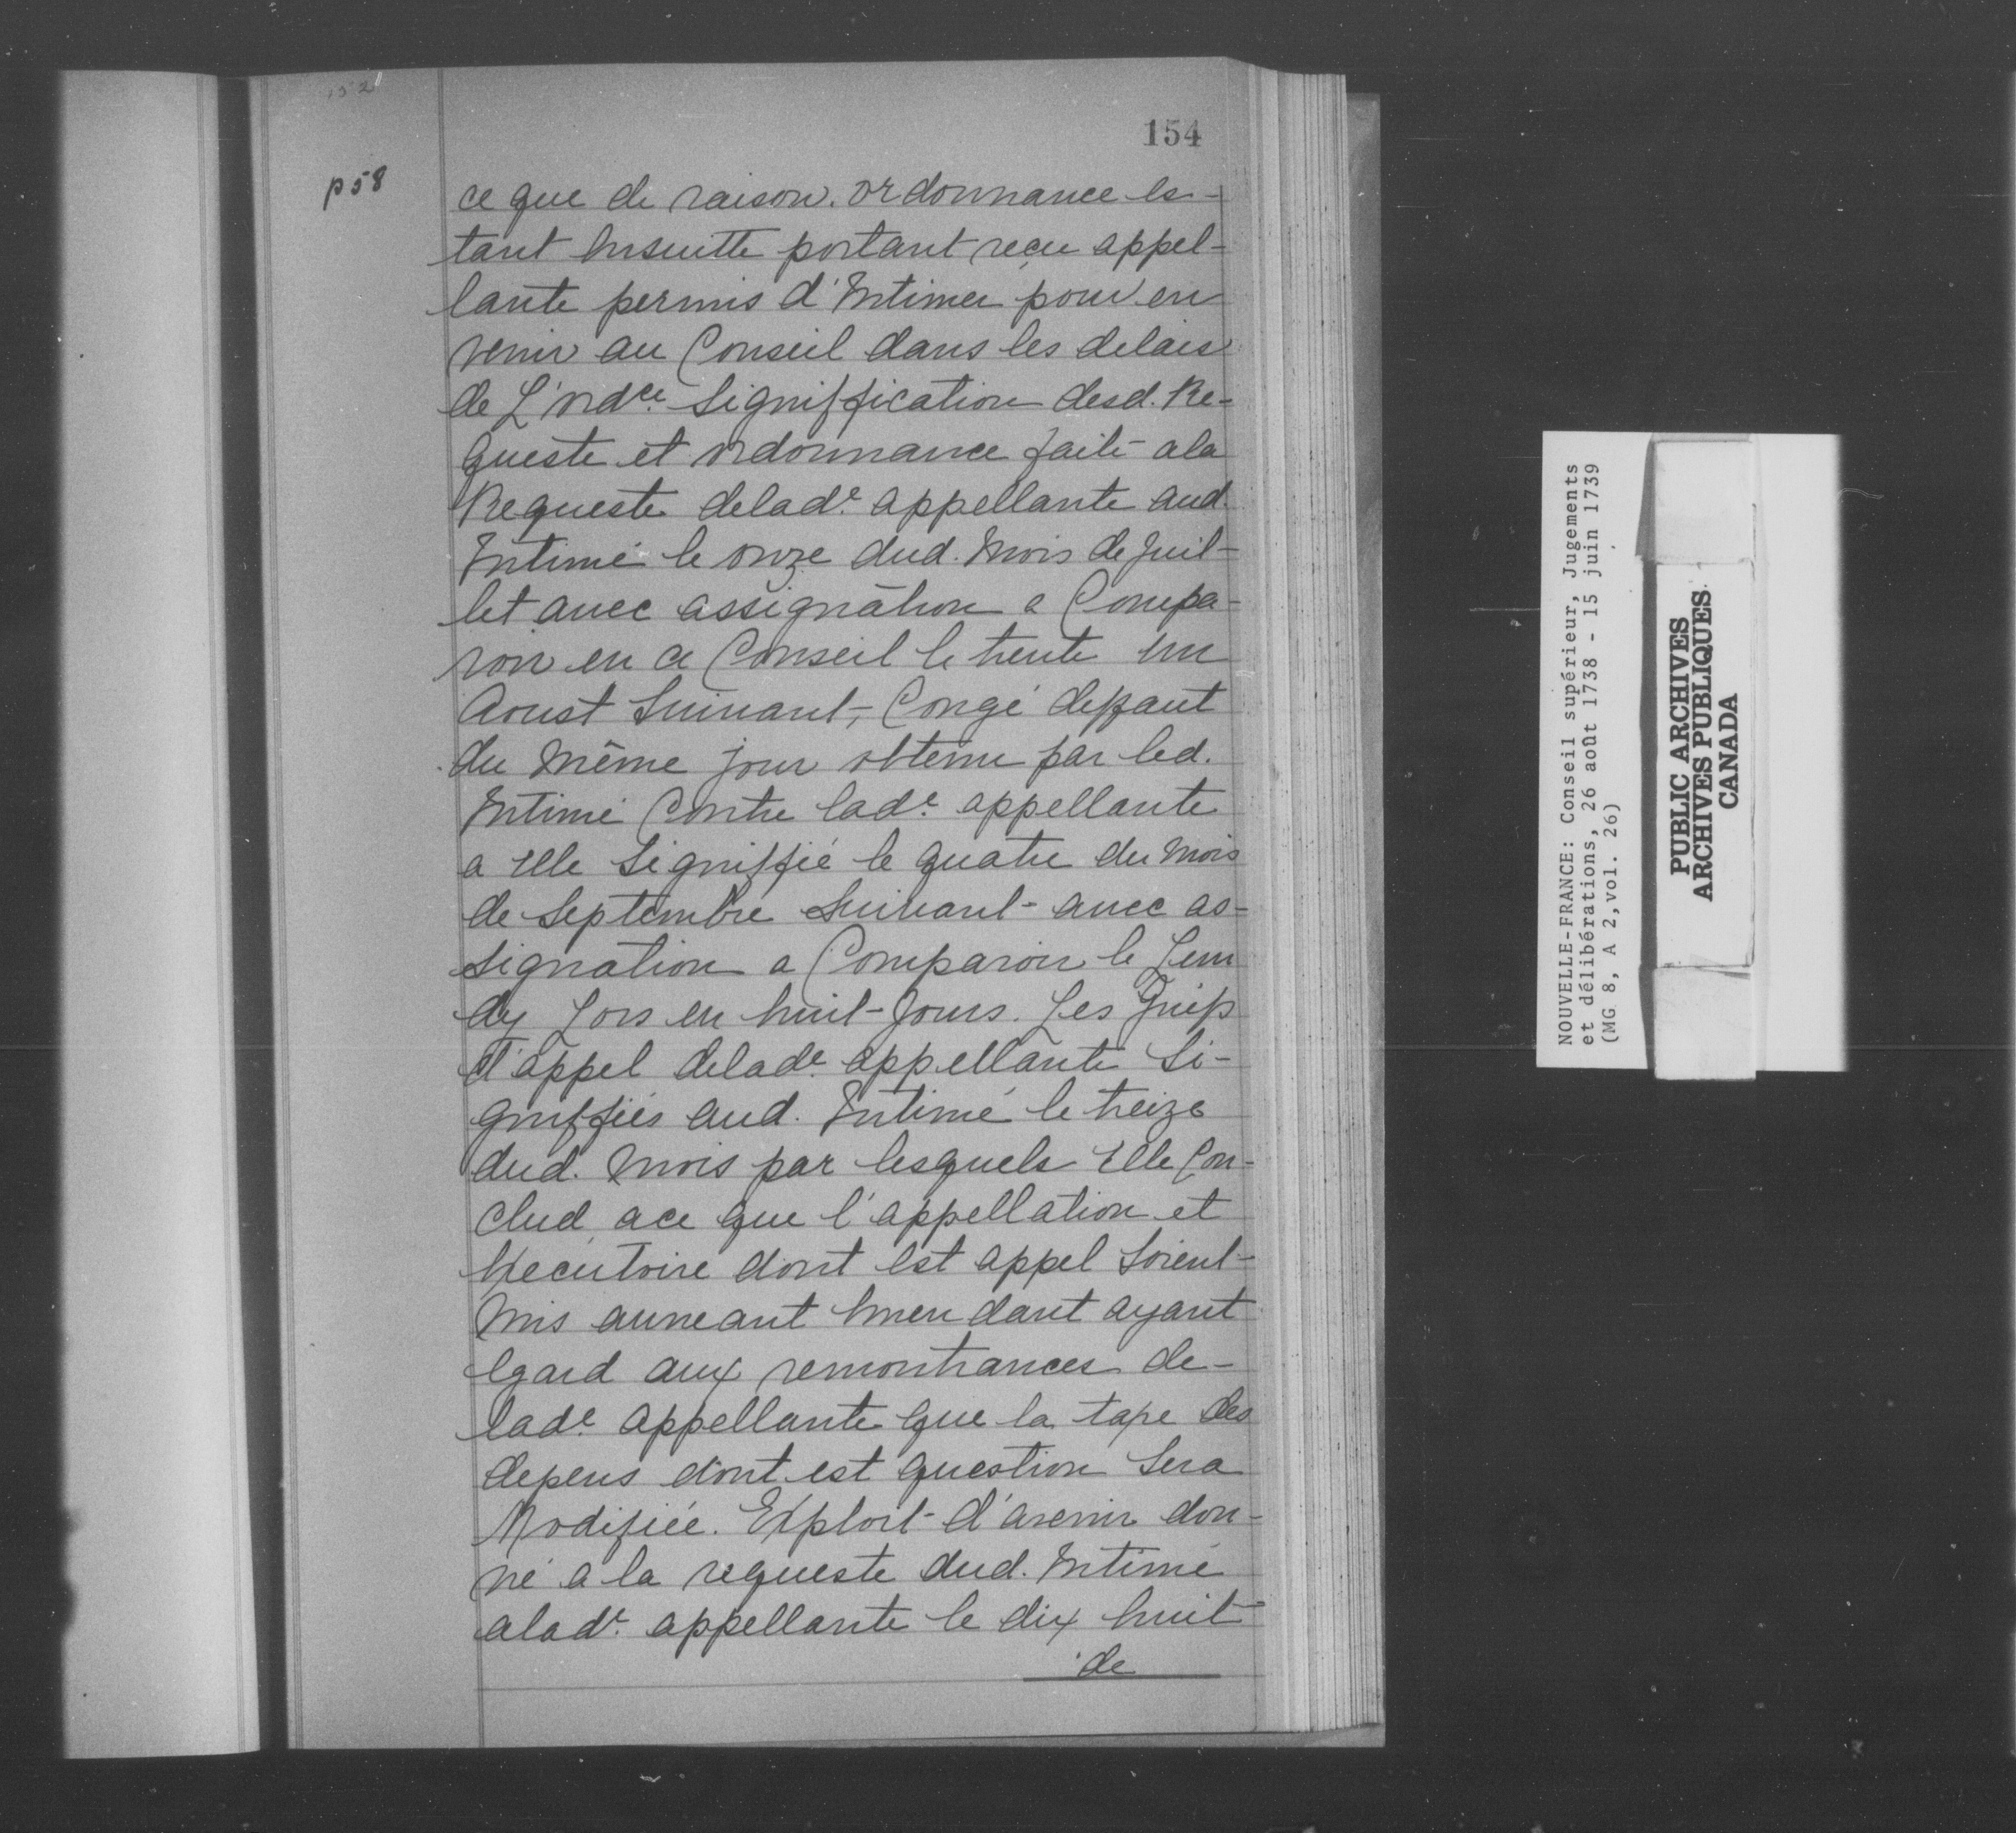 152
154
p58
ce que de raison. ordonnance es-
tant Ensuitte portant reçue appel-
lante permis d'Intimer pour en
venir au Conseil dans les delais
de L'ordce. Signiffication desd. Re-
queste et ordonnance faite a la
Requeste delade. appellante aud.
Intimé le onze dud. Mois de Juil-
let avec assignation a Compa-
roir en ce Conseil le trente un
Aoust Suivant, Congé deffaut
du Même jour obtenu par led.
Intimé Contre lade. appellante
a Elle Signiffié le quatre du Mois
de Septembre Suivant avec as-
signation a Comparoir le Lun
dy Lors en huit Jours. Les Griefs
d'appel delade. appellante Si-
gniffiés aud. Intimé le treize
dud. Mois par lesquels Elle Con-
clud, ace que l'appellation et
Executoire dont est appel Soient
Mis auneant Emendant ayant
Egard aux remontrances de-
lade. appellante que la taxe des
depens dont est question Sera
Modifiée. Exploit d'avenir don-
né a la requeste dud. Intimé
alade. appellante le dix huit
de
NOUVELLE-FRANCE: Conseil supérieur, Jugements
et délibérations, 26 août 1738 - 15 juin 1739
(MG 8, A 2, vol. 26)
PUBLIC ARCHIVES
ARCHIVES PUBLIQUES
CANADA